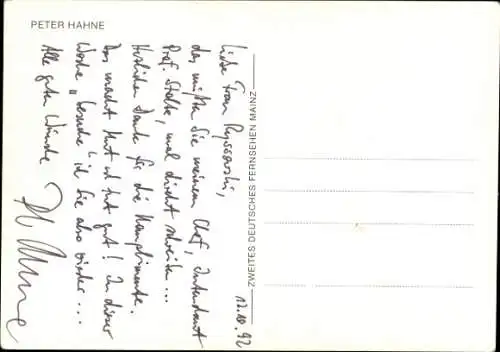 PETER HAHNE
ZWEITES DEUTSCHES FERNSEHEN MAINZ
12.10.92
Liebe Frau
das müßten Sie meinem Chef, Intendant
Prof. Stolte, mal direkt schreiben...
Herzlichen Dank für die Komplimente.
Das macht Mut ist tut gut! In dieser
Woche „besuche" ich Sie also wieder...
Alle guten Wünsche